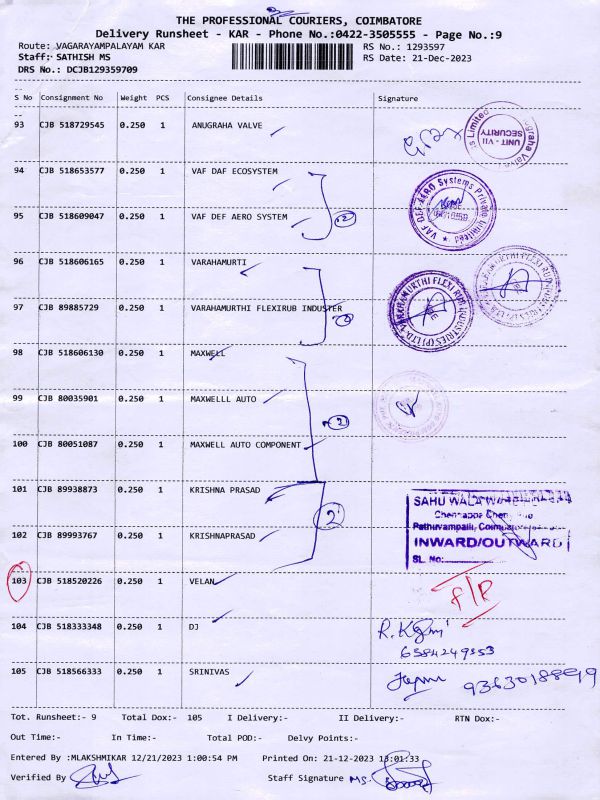 THE PROFESSIONAL COURIERS, COIMBATORE
Delivery Runsheet - KAR - Phone No.:0422-3505555 - Page No.:9
Route: VAGARAYAMPALAYAM KAR RS No.: 1293597
Staff: SATHISH MS RS Date: 21-Dec-2023
DRS No.: DCJB129359709
S No Consignment No Weight PCS Consignee Details Signature
93 CJB 518729545 0.250 1 ANUGRAHA VALVE
UNIT - VII
SECURITY
94 CJB 518653577 0.250 1 VAF DAF ECOSYSTEM
VAF DEF-AERO Systems Private Limited
95 CJB 518609047 0.250 1 VAF DEF AERO SYSTEM 2
96 CJB 518606165 0.250 1 VARAHAMURTI
97 CJB 89885729 0.250 1 VARAHAMURTHI FLEXIRUB INDUSTER
VARAHAMURTHI FLEXIRUB INDUSTRIES (P) LTD
98 CJB 518606130 0.250 1 MAXWELL
99 CJB 80035901 0.250 1 MAXWELLL AUTO 2
100 CJB 80051087 0.250 1 MAXWELL AUTO COMPONENT
101 CJB 89938873 0.250 1 KRISHNA PRASAD
2
SAHU
Pathuvampalli,
INWARD/OUTWARD
SL. No:
102 CJB 89993767 0.250 1 KRISHNAPRASAD
103 CJB 518520226 0.250 1 VELAN
104 CJB 518333348 0.250 1 DJ
6584249553
105 CJB 518566333 0.250 1 SRINIVAS 9363018899
Tot. Runsheet:- 9 Total Dox:- 105 I Delivery:- II Delivery:- RTN Dox:-
Out Time:- In Time:- Total POD:- Delvy Points:-
Entered By :MLAKSHMIKAR 12/21/2023 1:00:54 PM Printed On: 21-12-2023 13:01:33
Verified By Staff Signature MS.